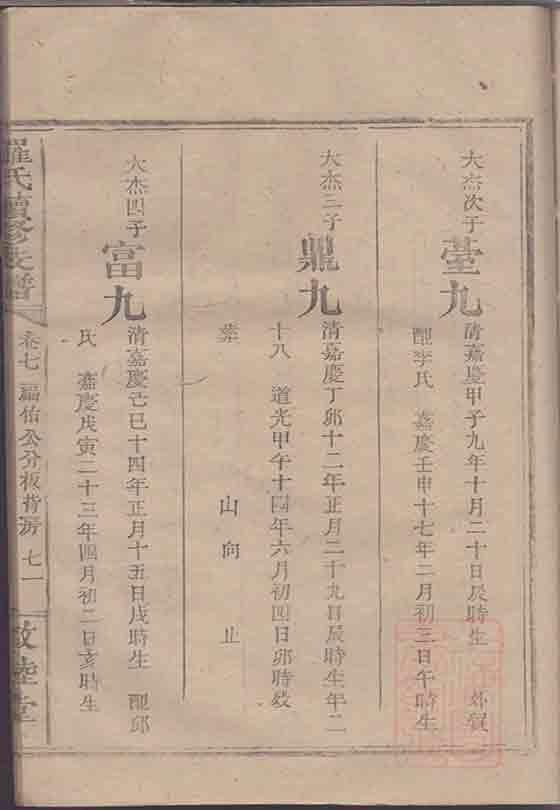 大杰次子
臺九
清嘉慶甲子九年十月二十日辰時生 外貿
配李氏 嘉慶壬申十七年二月初三日午時生
大杰三子
鼎九
清嘉慶丁卯十二年正月二十九日辰時生年二
十八 道光甲午十四年六月初四日卯時歿
葬 山向 止
大杰四子
富九
清嘉慶己巳十四年正月十五日戌時生 配邱
氏 嘉慶戊寅二十三年四月初二日亥時生
羅氏續修支譜
卷七 福佑公分板背房 七一
敦睦堂